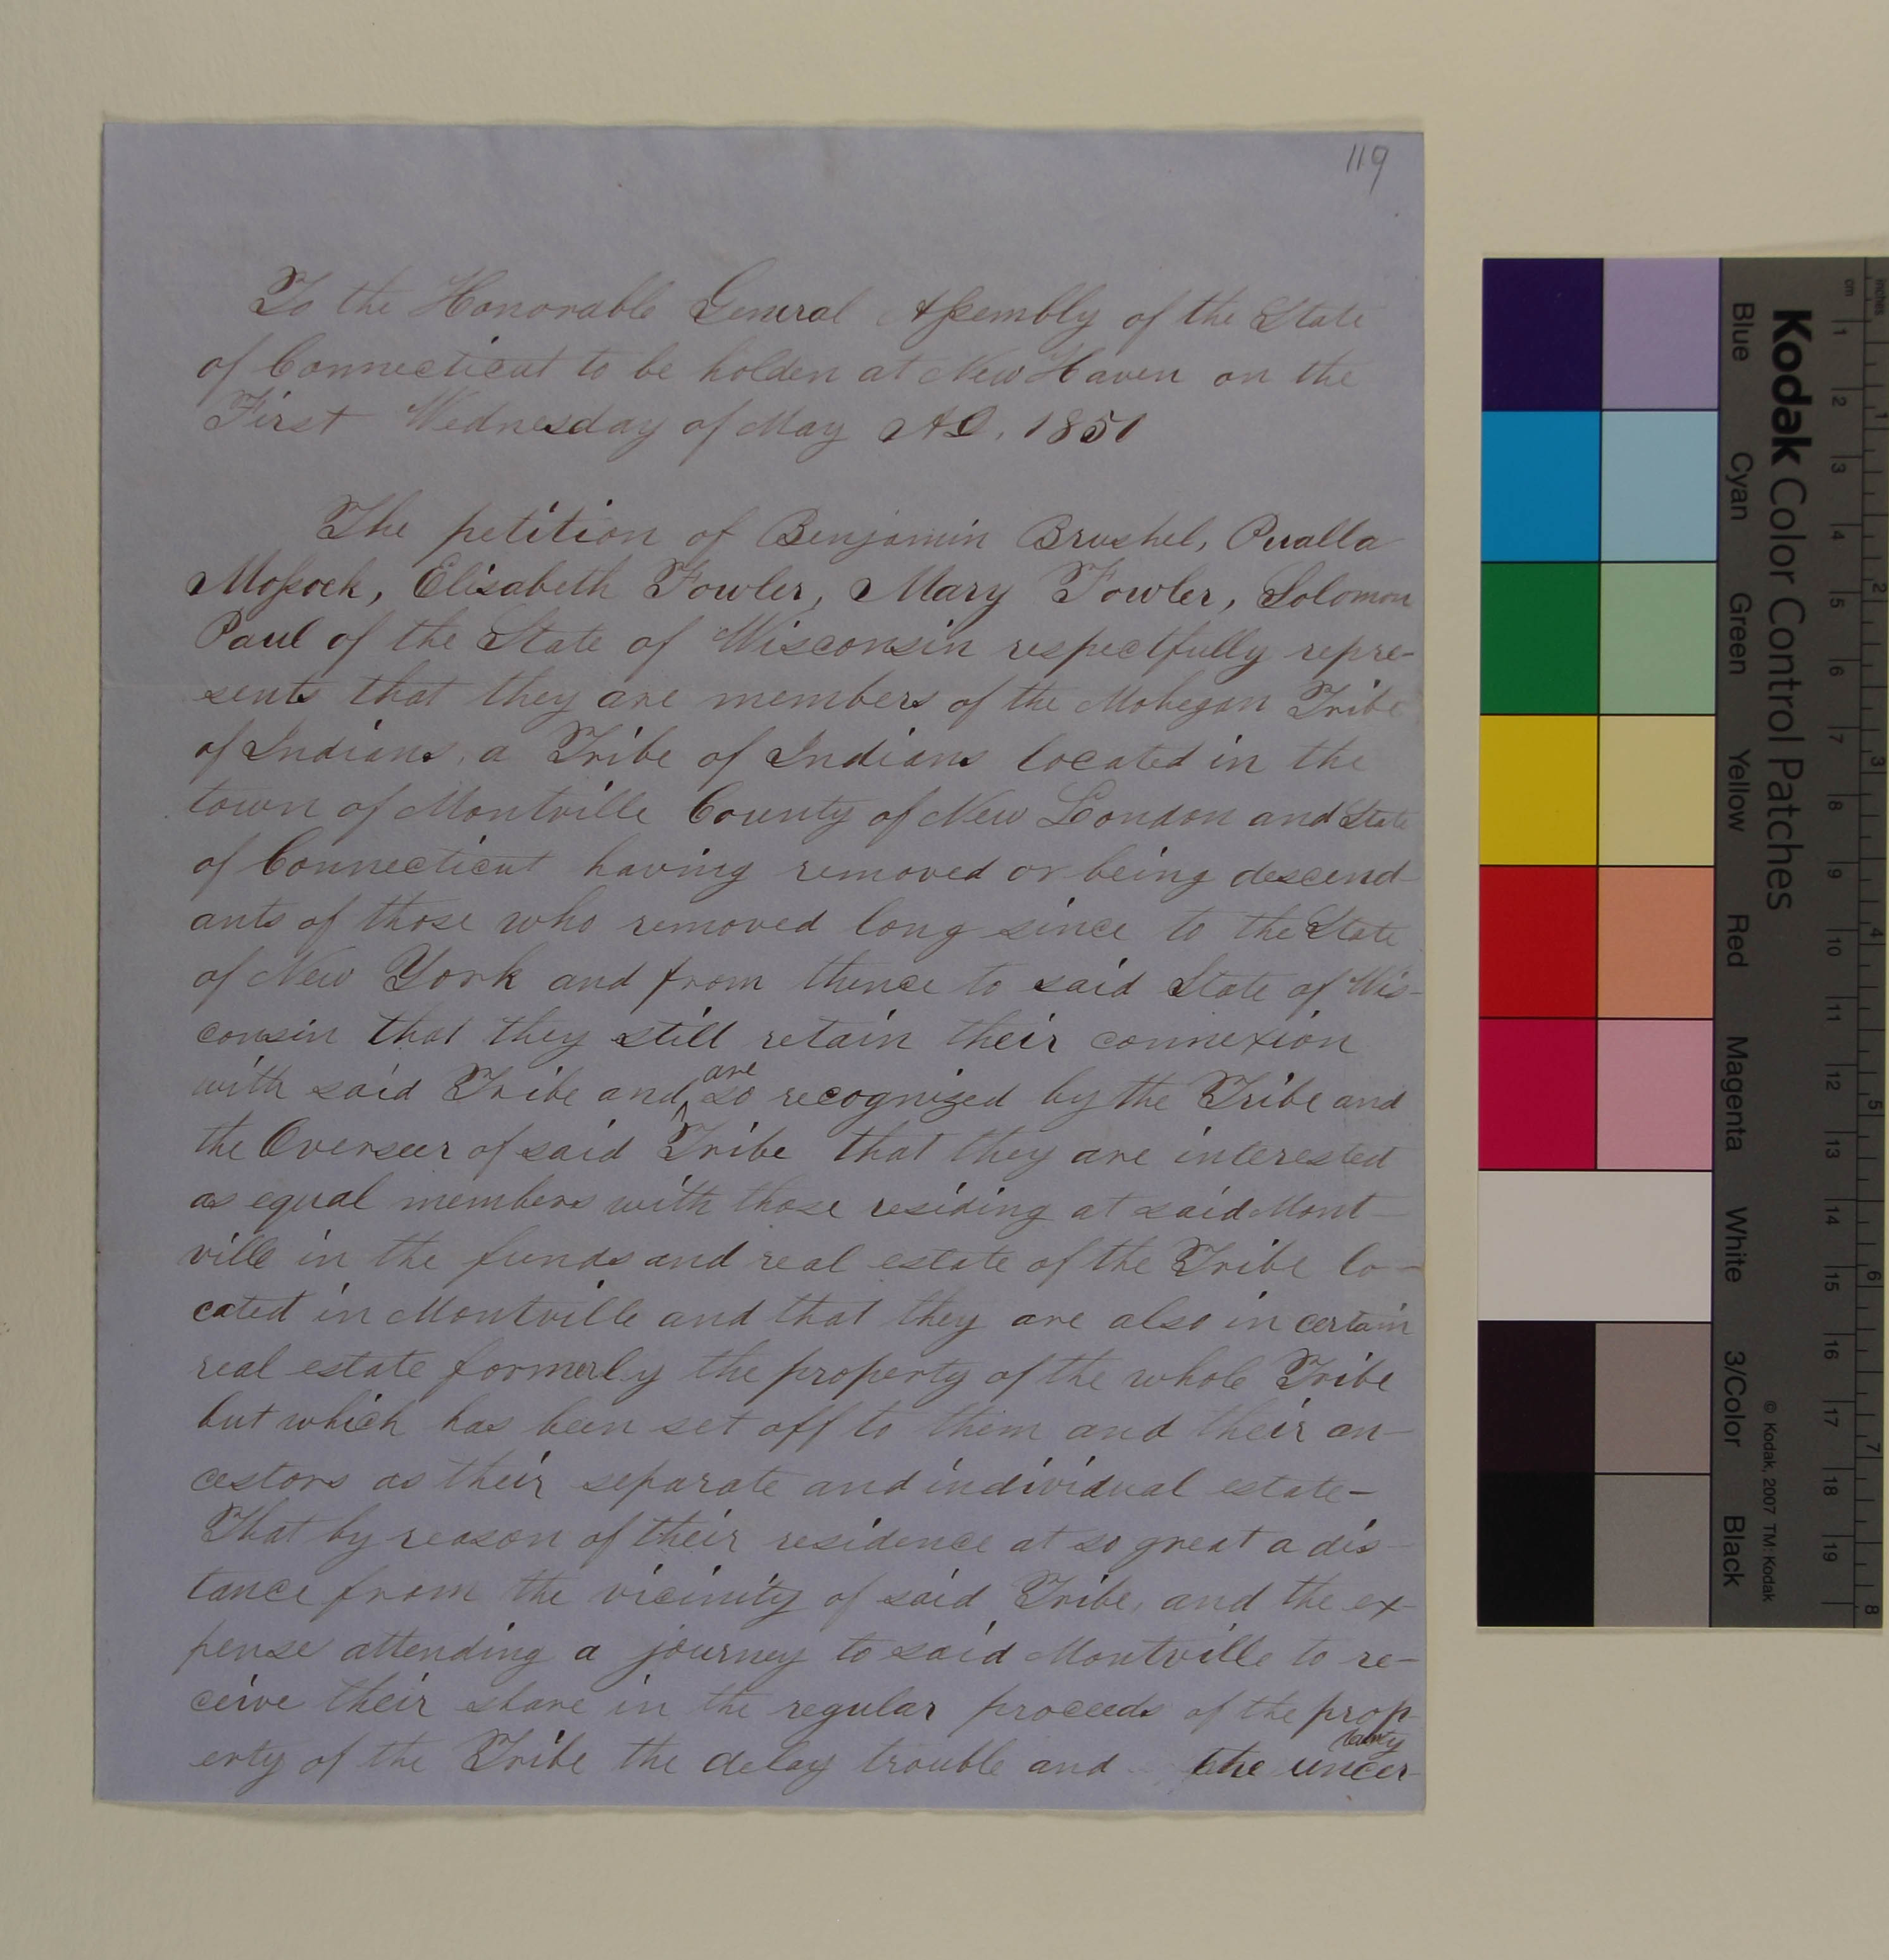 119
To the Honorable General Assembly of the State
of Connecticut to be holden at New Haven on the
First Wednesday of May A.D. 1851
The petition of Benjamin Brushel, Pualla
Mossock, Elisabeth Fowler, Mary Fowler, Solomon
Paul of the State of Wisconsin respectfully repre-
sents that they are members of the Mohegan Tribe
of Indians, a Tribe of Indians located in the
town of Montville County of New London and State
of Connecticut having removed or being descend-
ants of those who removed long since to the State
of New York and from thence to said State of Wis-
consin that they still retain their connexion
with said Tribe and are so recognized by the Tribe and
the Overseer of said Tribe that they are interested
as equal members with those residing at said Mont-
ville in the funds and real estate of the Tribe lo-
cated in Montville and that they are also in certain
real estate formerly the property of the whole Tribe
but which has been set off to them and their an-
cestors as their separate and individual estate-
That by reason of their residence at so great a dis-
tance from the vicinity of said Tribe, and the ex-
pense attending a journey to said Montville to re-
ceive their share in the regular proceeds of the prop-
erty of the Tribe the delay trouble and the uncer-
tainty
Kodak Color Control Patches
© Kodak, 2007 TM: Kodak
Blue Cyan Green Yellow Red Magenta White 3/Color Black
cm 1 2 3 4 5 6 7 8 9 10 11 12 13 14 15 16 17 18 19
inches 1 2 3 4 5 6 7 8